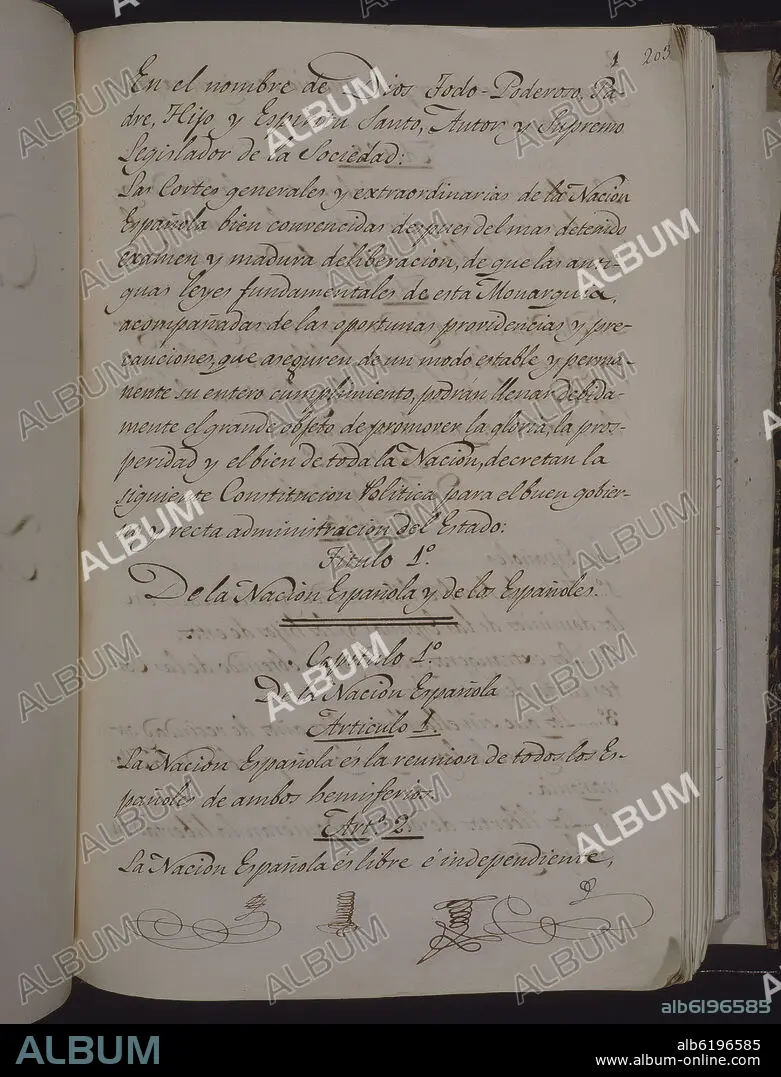 1 203
En el nombre de Dios Todo-Poderoso, Pa-
dre, Hijo y Espiritu Santo, Autor y Supremo
Legislador de la Sociedad:
Las Cortes generales y extraordinarias de la Nacion
Española bien convencidas despues del mas detenido
examen y madura deliberacion, de que las anti-
guas leyes fundamentales de esta Monarquia,
acompañadas de las oportunas providencias y pre-
cauciones, que aseguren de un modo estable y perma-
nente su entero cumplimiento, podran llenar debida-
mente el grande objeto de promover la gloria, la pros-
peridad y el bien de toda la Nacion, decretan la
siguiente Constitucion Politica para el buen gobier-
no y recta administracion del Estado:
Titulo 1º.
De la Nacion Española y de los Españoles.
Capitulo 1º.
De la Nacion Española
Articulo 1.
La Nacion Española és la reunion de todos los Es-
pañoles de ambos hemisferios.
Artº. 2.
La Nacion Española és libre é independiente,
alb6196585
ALBUM
alb6196585
www.album-online.com